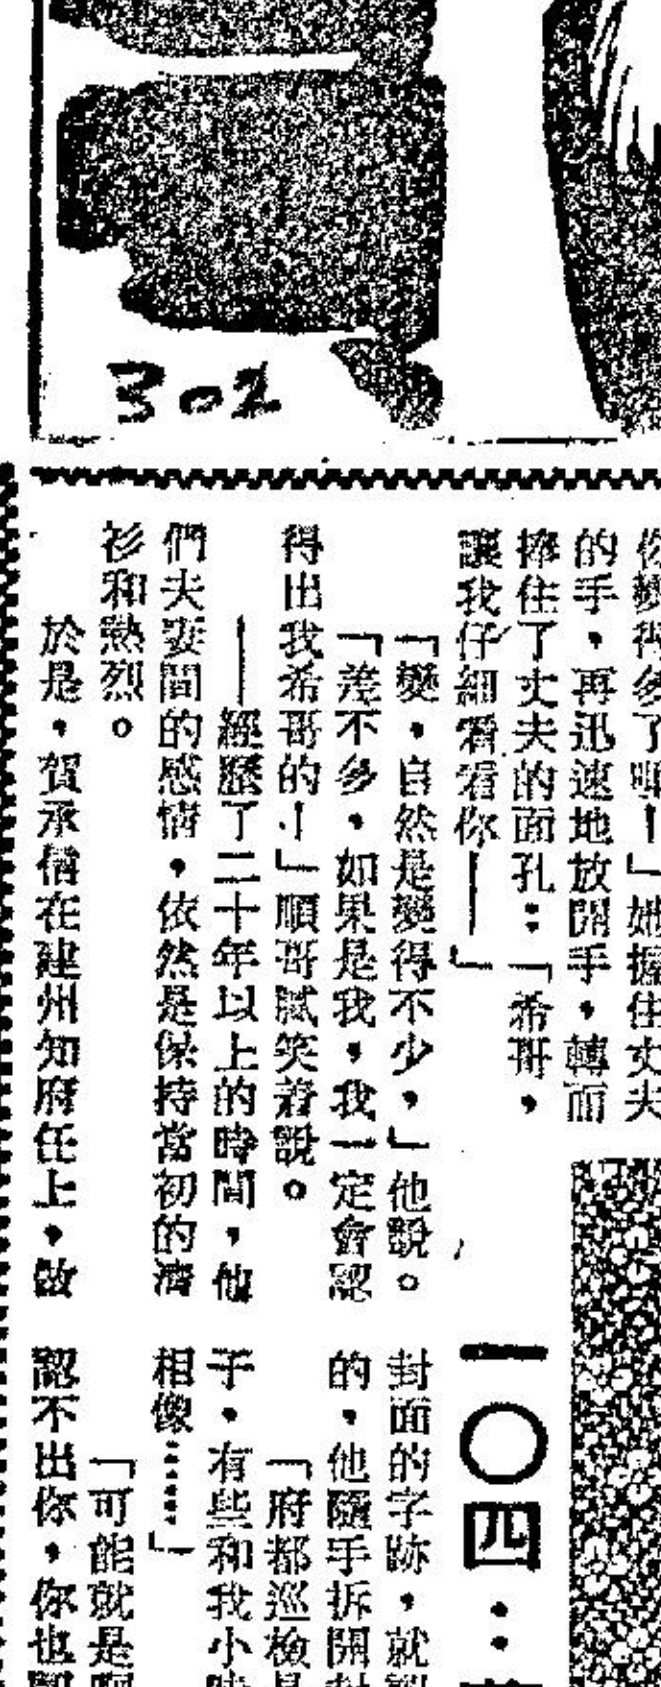 302
你變得多了嘛！」她握住丈夫
的手，再迅速地放開手，轉而
捧住了丈夫的面孔：「希哥，
讓我仔細看看你——」
「變，自然是變得不少，」他說。
「差不多，如果是我，我一定會認
得出我希哥的！」順哥膩笑着說。
——經歷了二十年以上的時間，他
們夫妻間的感情，依然是保持當初的濟
衫和熱烈。
於是，賀承信在建州知府任上，做
一〇四：
封面的字跡，就
的，他隨手拆開封
「府都巡檢是
子，有些和我小
相像……」
「可能就是啊
認不出你，你也認